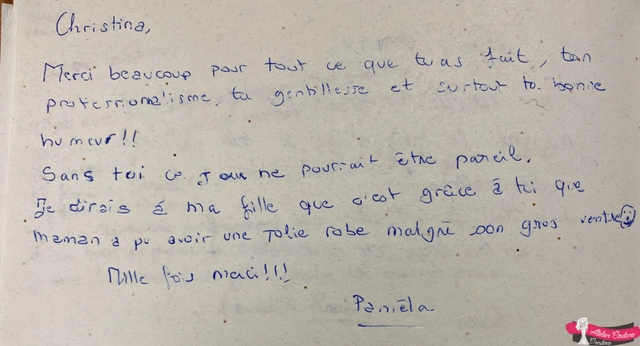 Christina,
Merci beaucoup pour tout ce que tu as fait, ton
professionalisme, ta gentillesse et surtout ta bonne
humeur!!
Sans toi ce jour ne pourrait être pareil.
Je dirais à ma fille que c'est grâce à toi que
maman a pu avoir une jolie robe malgré son gros ventre
Mille fois merci!!!
Paniéla
Atelier Couture